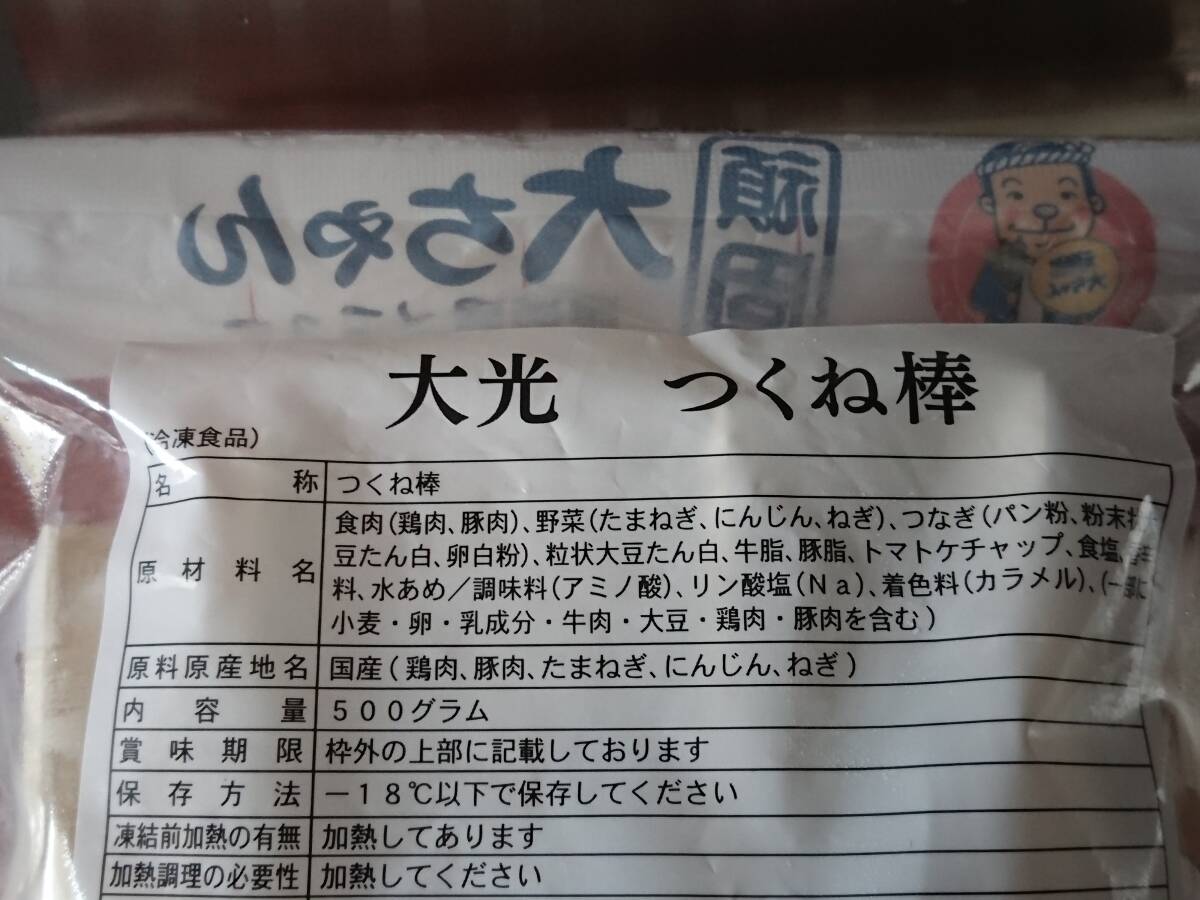 頑固
大ちゃん
大光 つくね棒
(冷凍食品)
名称 つくね棒
原材料名 食肉(鶏肉、豚肉)、野菜(たまねぎ、にんじん、ねぎ)、つなぎ(パン粉、粉末状
豆たん白、卵白粉)、粒状大豆たん白、牛脂、豚脂、トマトケチャップ、食塩、
料、水あめ/調味料(アミノ酸)、リン酸塩(Na)、着色料(カラメル)、(一部に
小麦・卵・乳成分・牛肉・大豆・鶏肉・豚肉を含む)
原料原産地名 国産(鶏肉、豚肉、たまねぎ、にんじん、ねぎ)
内容量 500グラム
賞味期限 枠外の上部に記載しております
保存方法 -18℃以下で保存してください
凍結前加熱の有無 加熱してあります
加熱調理の必要性 加熱してください